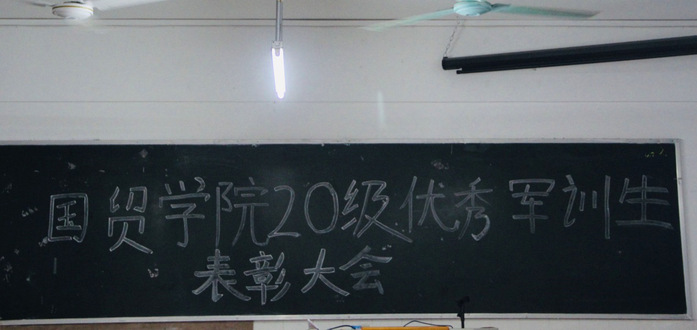 国贸学院20级优秀军训生
表彰大会